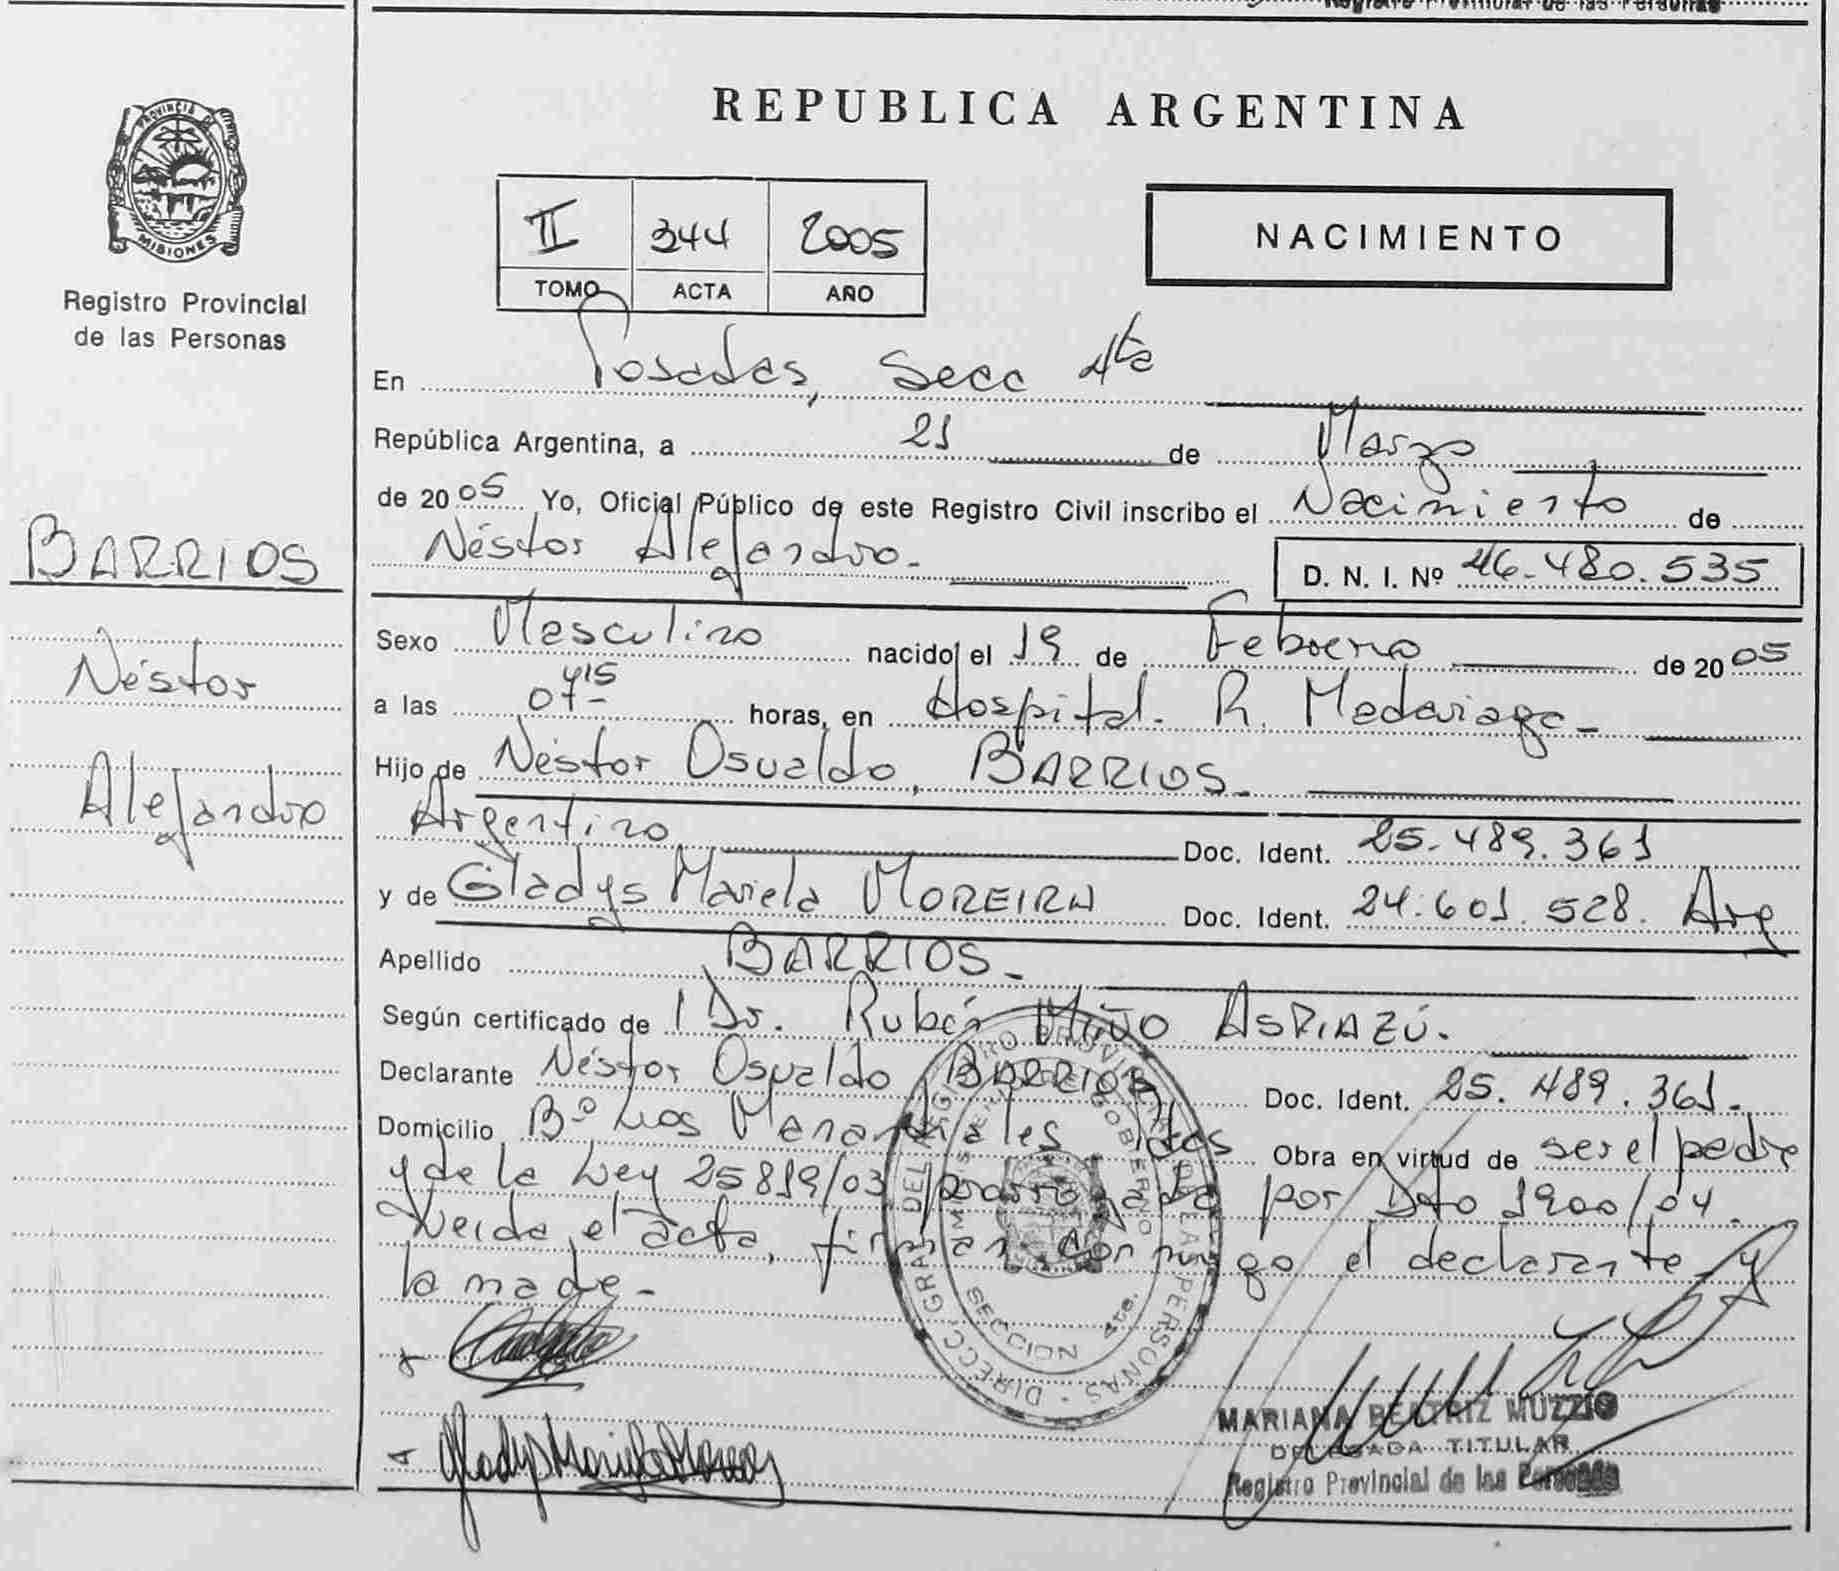 Registro Provincial de las Personas
PROVINCIA DE
MISIONES
Registro Provincial
de las Personas
BARRIOS
Néstor
Alejandro
REPUBLICA ARGENTINA
II 344 2005
TOMO ACTA AÑO
NACIMIENTO
En Posadas, Secc 4ta
República Argentina, a 21 de Marzo
de 2005 Yo, Oficial Público de este Registro Civil inscribo el Nacimiento de
Néstor Alejandro.-
D. N. I. Nº 46.480.535
Sexo Masculino nacido el 19 de Febrero de 2005
a las 07 45 horas, en Hospital. R. Madariaga-
Hijo de Néstor Osvaldo, BARRIOS.-
Argentino Doc. Ident. 25.489.361
y de Gladys Mariela MOREIRA Doc. Ident. 24.601.528. Arg
Apellido BARRIOS.-
Según certificado de Dr. Rubén MIÑO ASPIAZÚ.
Declarante Néstor Osvaldo BARRIOS Doc. Ident. 25.489.361.-
Domicilio Bº Los Manantiales Obra en virtud de ser el padre
y de la Ley 25819/03 prorrogada por Dto 1900/04.
Leída el acta, firman conmigo el declarante y
la madre.-
DIRECC. GRAL DEL REGISTRO PROVINCIAL DE LAS PERSONAS
MINISTERIO DE GOBIERNO
SECCION 4ta.
Gladys Mariela Moreira
MARIANA BEATRIZ MUZZIO
DELEGADA TITULAR
Registro Provincial de las Personas